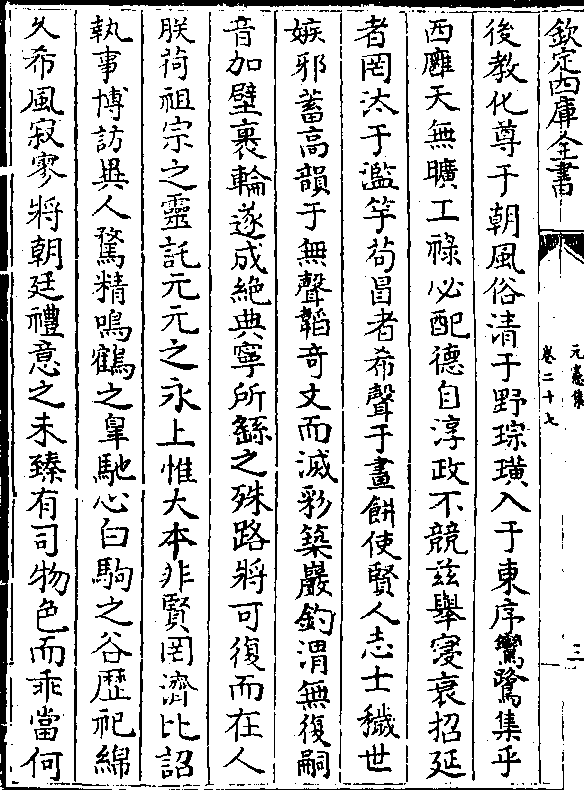 欽定四庫全書
元憲集
卷二十七
三
後教化尊于朝風俗清于野琮璜入于東序鸞鷺集乎
西雝天無曠工祿必配德自淳政不競兹舉寖衰招延
者罔汰于濫竽苟冒者希聲于畫餅使賢人志士穢世
嫉邪蓄高韻于無聲韜奇文而滅彩築巖釣渭無復嗣
音加璧裹輪遂成絶典寧所繇之殊路將可復而在人
朕荷祖宗之靈託元元之永上惟大本非賢罔濟比詔
執事博訪異人騖精鳴鶴之皐馳心白駒之谷歴祀綿
久希風寂寥將朝廷禮意之未臻有司物色而乖當何